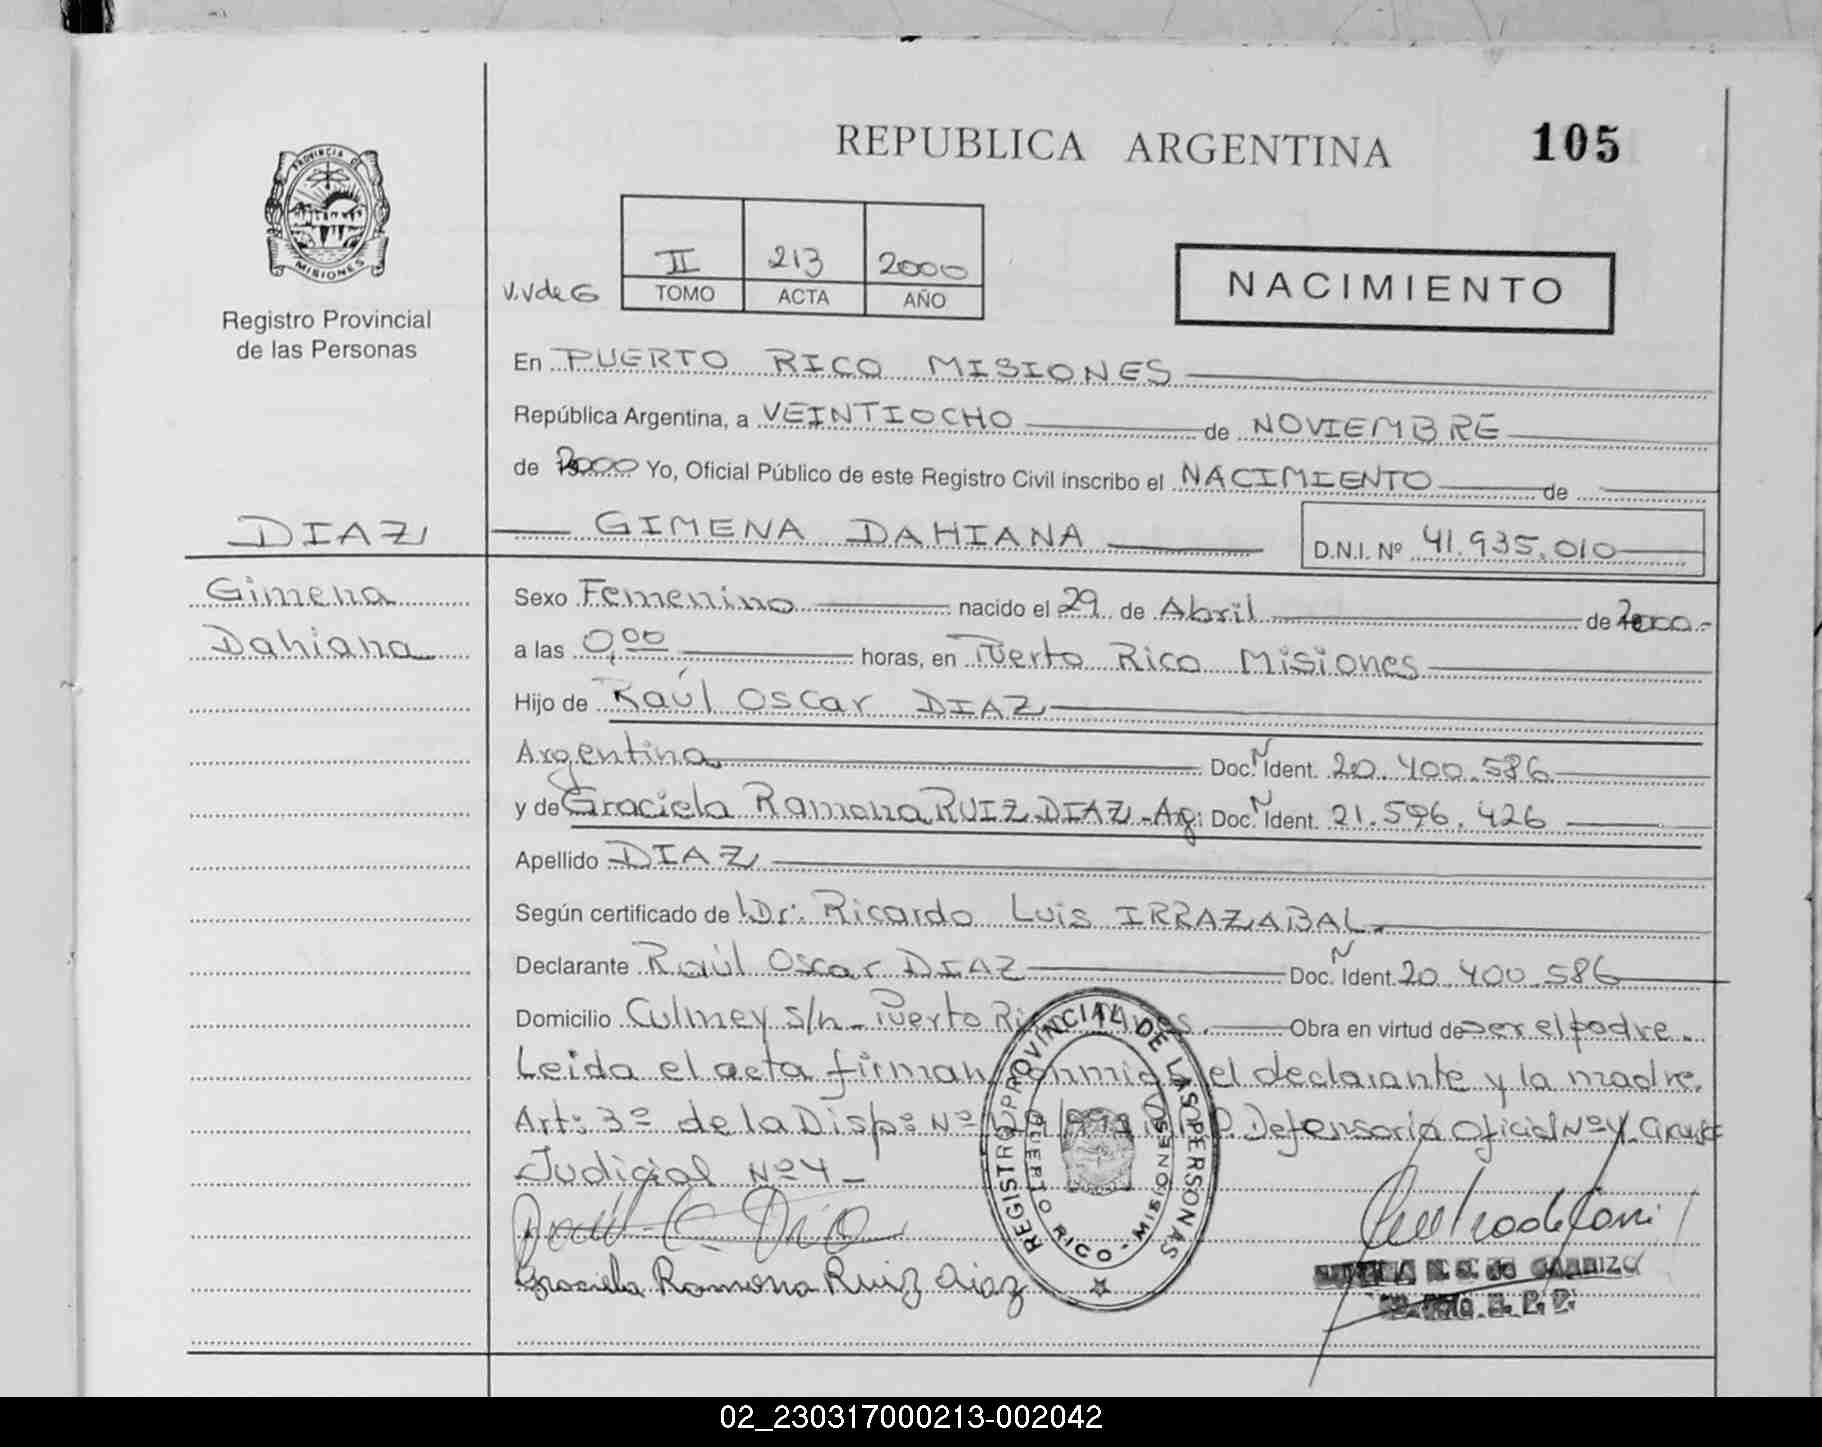 REPUBLICA ARGENTINA
105
PROVINCIA DE
MISIONES
Registro Provincial
de las Personas
V.V de G
II 213 2000
TOMO ACTA AÑO
NACIMIENTO
En PUERTO RICO MISIONES
República Argentina, a VEINTIOCHO de NOVIEMBRE
de 2000 Yo, Oficial Público de este Registro Civil inscribo el NACIMIENTO de
DIAZ GIMENA DAHIANA D.N.I. Nº 41.935.010
Gimena
Dahiana
Sexo Femenino nacido el 29 de Abril de 2000.-
a las 0,00 horas, en Puerto Rico Misiones
Hijo de Raúl Oscar DIAZ
Argentina Doc. N Ident. 20.400.586
y de Graciela Ramona RUIZ DIAZ - Arg: Doc. N Ident. 21.596.426
Apellido DIAZ
Según certificado de Dr: Ricardo Luis IRRAZABAL.
Declarante Raúl Oscar DIAZ Doc. N Ident. 20.400.586
Domicilio Culmey s/n - Puerto Obra en virtud de ser el padre.
Leida el acta firman conmigo el declarante y la madre.
Art: 3º de la Disp: Nº Defensoria Oficial Nº 4
Judicial Nº 4 -
Graciela Ramona Ruiz Diaz
REGISTRO PROVINCIAL DE LAS PERSONAS
PUERTO RICO - MISIONES
de
02_230317000213-002042